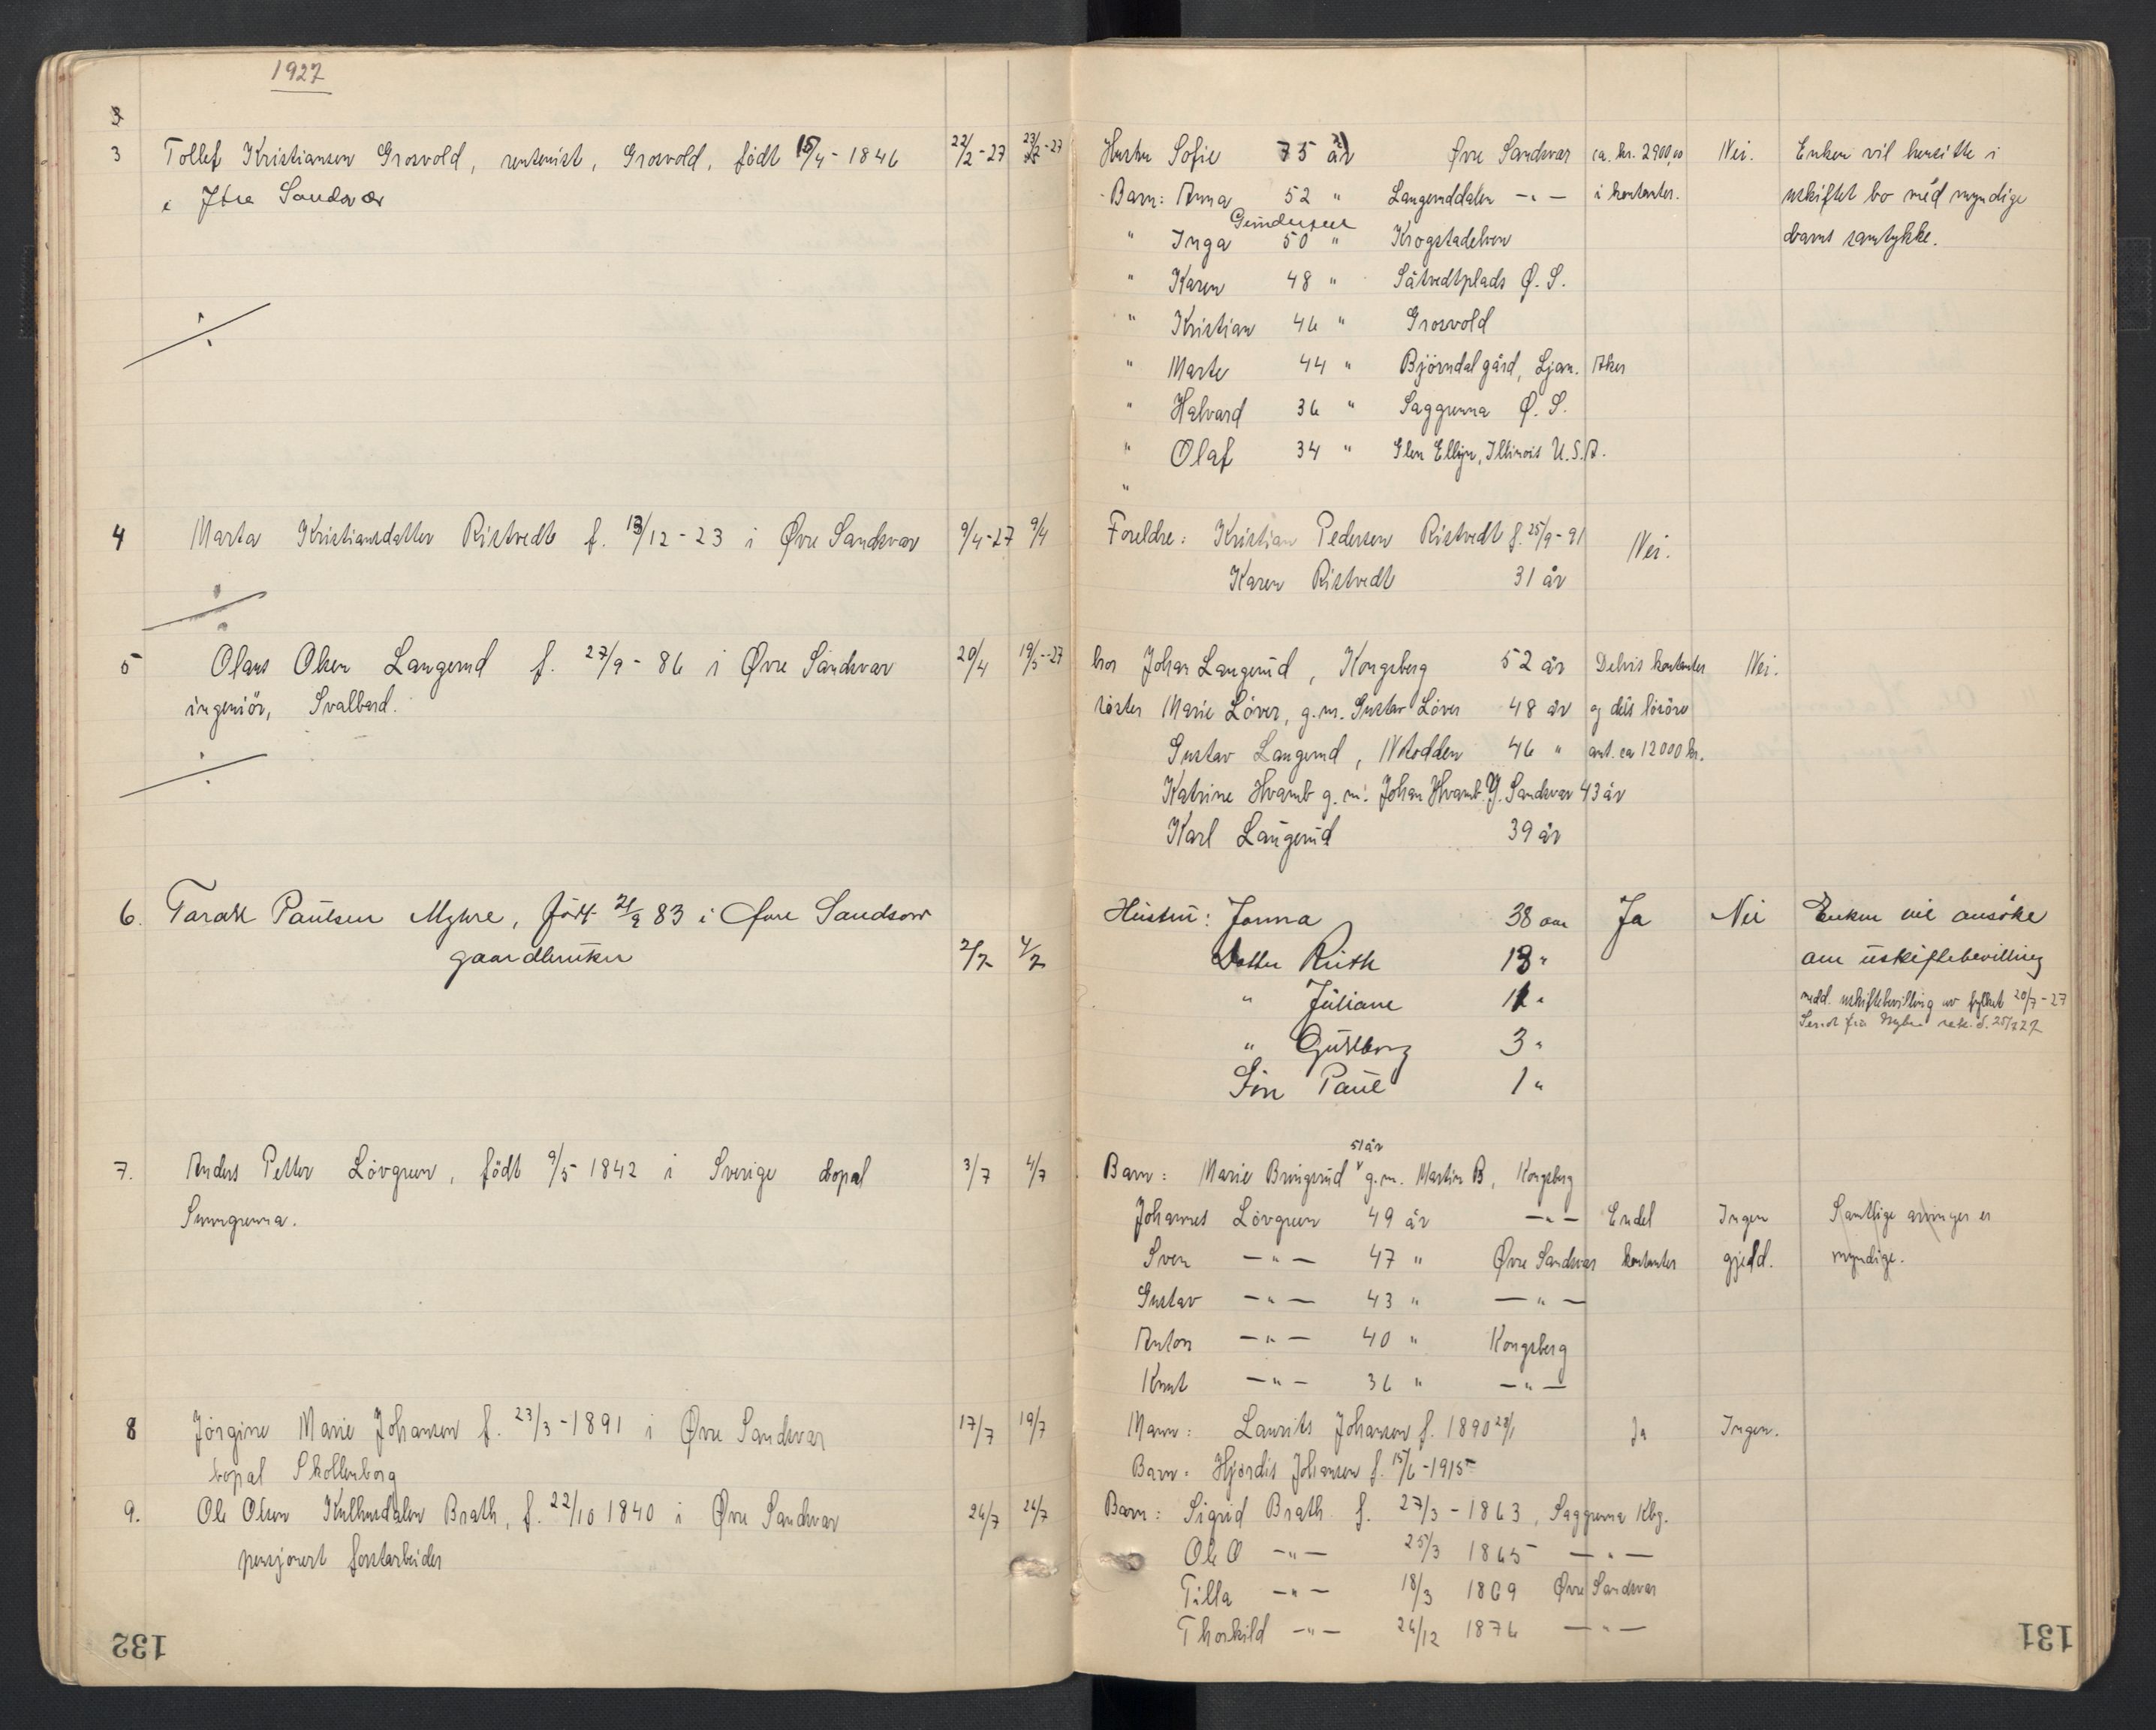 1927
3
3 Tollef Kristiansen Grosvold, rentenist, Grosvold, födt 15/4 - 1846 22/2-27 23/2-27
i Ytre Sandsvær
4 Marta Kristiansdatter Ristvedt f. 13/12 - 23 i Øvre Sandsvær 9/4-27 9/4
5 Olaus Olsen Langerud f. 27/9 - 86 i Øvre Sandsvær 20/4 19/5-27
ingeniör, Svalbard.
6. Tarald Paulsen Myhre, født 21/9 83 i Øvre Sandsvær
gaardbruker 2/7 4/7
7. Anders Petter Lövgren, födt 9/5 1842 i Sverige bopal 3/7 4/7
Sumgrenna.
8 Jörgine Marie Johansen f. 23/3 - 1891 i Øvre Sandsvær 17/7 19/7
bopal Skollenborg
9. Ole Olsen Kulhusdalen Brath, f. 22/10 1840 i Øvre Sandsvær 26/7 26/7
pensjonert forstarbeider
132
Hustru Sofie 75 år Øvre Sandsvær ca. kr. 2900,00 Nei. Enken vil hensitte i
Barn: Anna 52 " Langerddalen -"- i kontanter. uskiftet bo med myndige
Gundersen
" Inga 50 " Krogstadelven barns samtykke.
" Karen 48 " Såtvedtplads Ø. S.
" Kristian 46 " Grosvold
" Marte 44 " Björndal gård, Ljan. Aker
" Halvard 36 " Saggrenna Ø. S.
" Olaf 34 " Glen Ellyn, Illinois U.S.A.
"
Foreldre: Kristian Pedersen Ristvedt f. 25/9 - 91 Nei.
Karen Ristvedt 31 år
bror Johan Langerud, Kongsberg 52 år Delvis kontanter Nei.
söster Marie Löver, g.m. Gustav Löver 48 år og dels lösöre
Gustav Langerud, Notodden 46 " ant. ca 12000 kr.
Katrine Hvamb g.m. Johan Hvamb Y. Sandsvær 43 år
Karl Langerud 39 år
Hustru: Jorina 38 aar Ja Nei Enken vil ansöke
Datter Ruth 13 " om uskiftebevilling
" Juliane 11 " medd. uskiftebevilling av fylket 20/7 - 27
" Gudborg 3 "
Sön Paul 1 "
51 år
Barn: Marie Bringsrud g.m. Martin B, Kongsberg
Johannes Lövgren 49 år -"- Endel Ingen Samtlige arvinger er
Sven -"- 47 " Øvre Sandsvær kontanter gjeld. myndige.
Gustav -"- 43 " -"-
Anton -"- 40 " Kongsberg
Knut -"- 36 " -"-
Mann: Laurits Johansen f. 1890 28/1 Ja Ingen.
Barn: Hjördis Johansen f. 15/6 - 1915
Barn: Sigrid Brath f. 27/3 - 1863, Saggrenna Kbg.
Ole O -"- 25/3 1865 -"-
Tilla -"- 18/3 1869 Øvre Sandsvær
Thorkild -"- 26/12 1876 -"-
131